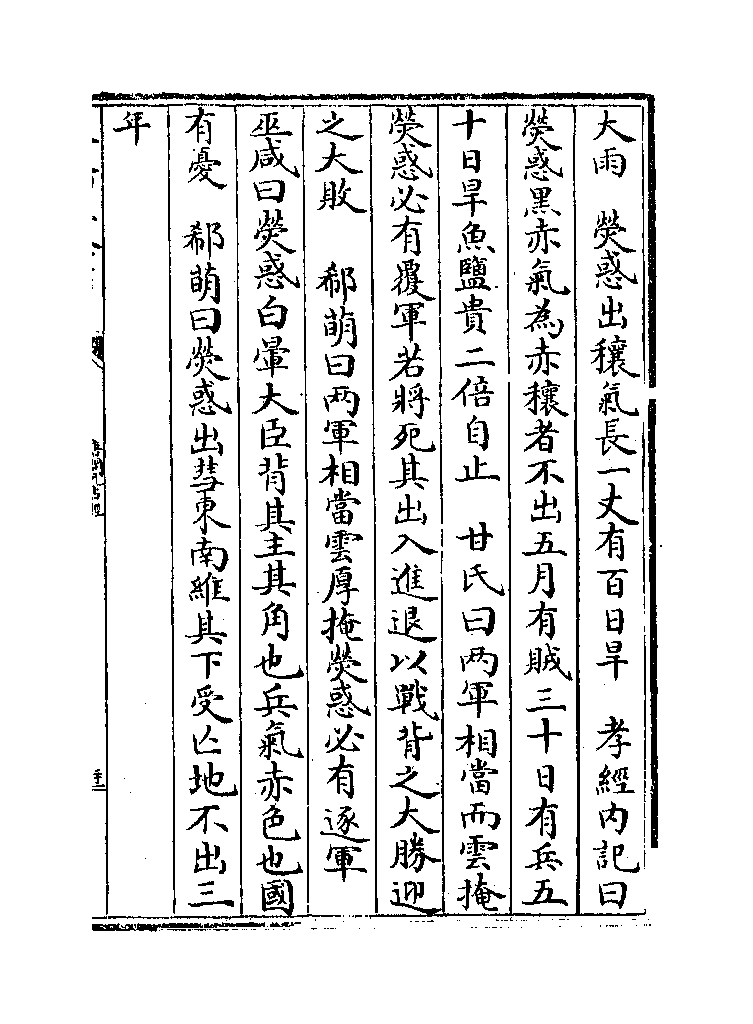 大雨　熒惑出穰氣長一丈有百日旱　孝經内記曰
熒惑黑赤氣為赤穰者不出五月有賊三十日有兵五
十日旱魚鹽貴二倍自止　甘氏曰兩軍相當而雲掩
熒惑必有覆軍若將死其出入進退以戰背之大勝迎
之大敗　郗萌曰兩軍相當雲厚掩熒惑必有逐軍
巫咸曰熒惑白暈大臣背其主其角也兵氣赤色也國
有憂　郗萌曰熒惑出彗東南維其下受亡地不出三
年